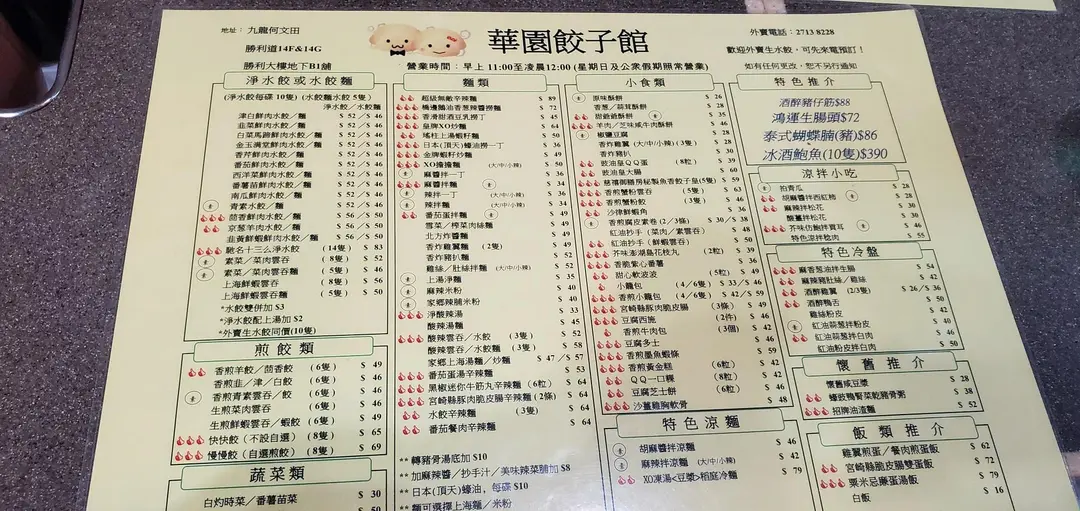 地址：九龍何文田
勝利道14F&14G
勝利大樓地下B1舖
華園餃子館
營業時間：早上 11:00至凌晨12:00 (星期日及公眾假期照常營業)
外賣電話：2713 8228
歡迎外賣生水餃，可先來電預訂！
如有任何更改，恕不另行通知
淨水餃或水餃麵
(淨水餃每碟 10隻) (水餃麵水餃 5隻)
淨水餃／水餃麵
津白鮮肉水餃／麵 $ 52 ／$ 46
韭菜鮮肉水餃／麵 $ 52 ／$ 46
白菜馬蹄鮮肉水餃／麵 $ 52 ／$ 46
金玉滿堂鮮肉水餃／麵 $ 52 ／$ 46
香芹鮮肉水餃／麵 $ 52 ／$ 46
番茄鮮肉水餃／麵 $ 52 ／$ 46
西洋菜鮮肉水餃／麵 $ 52 ／$ 46
番薯苗鮮肉水餃／麵 $ 52 ／$ 46
南瓜鮮肉水餃／麵 $ 52 ／$ 46
素 青素水餃／麵 $ 52 ／$ 46
茴香鮮肉水餃／麵 $ 56 ／$ 50
京葱羊肉水餃／麵 $ 56 ／$ 50
韭黃鮮蝦鮮肉水餃／麵 $ 56 ／$ 50
馳名十三么淨水餃 (14隻) $ 83
素 素菜／菜肉雲吞 (8隻) $ 52
素 素菜／菜肉雲吞麵 (5隻) $ 46
上海鮮蝦雲吞 (8隻) $ 56
上海鮮蝦雲吞麵 (5隻) $ 50
*水餃雙併加 $3
*淨水餃配上湯加 $2
*外賣生水餃同價(10隻)
煎餃類
香煎羊餃／茴香餃 (6隻) $ 49
香煎韭／津／白餃 (6隻) $ 46
素 香煎青素雲吞／餃 (6隻) $ 46
生煎菜肉雲吞 (6隻) $ 46
生煎鮮蝦雲吞／蝦餃 (6隻) $ 49
快快餃 (不設自選) (8隻) $ 65
慢慢餃 (自選煎餃) (8隻) $ 69
蔬菜類
白灼時菜／番薯苗菜 $ 30
麵類
超級無敵辛辣麵 $ 89
橋邊鵝油香葱辣醬撈麵 $ 72
香滑甜酒豆乳撈丁 $ 45
皇牌XO炒麵 $ 64
瑤柱上湯蝦籽麵 $ 50
日本(頂天)蠔油撈一丁 $ 36
金牌蝦籽炒麵 $ 49
XO擔擔麵 (大/中/小辣) $ 50
麻醬拌一丁 素 $ 36
麻醬拌麵 素 $ 34
素 辣拌一丁 (大/中/小辣) $ 36
素 辣拌麵 (大/中/小辣) $ 34
番茄蛋拌麵 素 $ 49
雪菜／榨菜肉絲麵 $ 49
北方炸醬麵 $ 49
香炸雞翼麵 (2隻) $ 49
香炸豬扒麵 $ 52
雞絲／肚絲拌麵 (大/中/小辣) $ 52
素 上湯淨麵 $ 35
素 麻辣米粉 $ 40
素 家鄉辣脯米粉 $ 40
淨酸辣湯 $ 33
酸辣湯麵 $ 45
酸辣雲吞／水餃 (3隻) $ 52
酸辣雲吞／水餃麵 (3隻) $ 58
家鄉上海湯麵／炒麵 $ 47 ／$ 57
番茄蛋湯辛辣麵 $ 53
黑椒迷你牛筋丸辛辣麵 (6粒) $ 64
宮崎縣豚肉脆皮腸辛辣麵 (2條) $ 64
水餃辛辣麵 (3隻) $ 64
番茄餐肉辛辣麵 $ 64
** 轉豬骨湯底加 $10
** 加麻辣醬／抄手汁／美味辣菜脯加 $8
** 日本(頂天)蠔油，每碟 $10
** 麵可選擇上海麵／米粉
小食類
素 原味酥餅 $ 26
香葱／蒜茸酥餅 $ 28
甜爺爺酥餅 素 $ 35
羊肉／芝味咸牛肉酥餅 $ 36
素 椒鹽豆腐 $ 28
香炸雞翼 (大/中/小賣) (3隻) $ 28
香炸豬扒 $ 30
豉油皇QQ蛋 (8粒) $ 39
豉油皇大腸 $ 60
慈禧御膳房秘製魚香餃子皇(5隻) $ 59
香煎蟹粉雲吞 (5隻) $ 63
香煎蟹粉餃 (3隻) $ 46
沙律鮮蝦角 $ 36
素 香煎腐皮素卷 (2/3條) $ 30／$ 38
紅油抄手 (菜肉／素雲吞) $ 38
紅油抄手 (鮮蝦雲吞) $ 50
芥味澎湖島花枝丸 (2粒) $ 39
香脆紫心番薯 $ 36
甜心軟波波 (5粒) $ 49
小籠包 (4／6隻) $ 33／$ 46
香煎小籠包 (4／6隻) $ 42／$ 59
宮崎縣豚肉脆皮腸 (3條) $ 49
豆腐西施 (2件) $ 46
香煎牛肉包 (3個) $ 42
豆腐多士 $ 46
香煎墨魚蝦條 $ 59
香煎黃金糕 (6粒) $ 42
QQ一口糰 (8粒) $ 42
豆腐芝士餅 (6粒) $ 46
沙薑雞胸軟骨 $ 48
特色涼麵
素 胡麻醬拌涼麵 $ 46
素 麻辣拌涼麵 (大/中/小辣) $ 42
XO凍湯<豆漿>稻庭冷麵 $ 79
特色推介
酒醉豬仔筋$88
鴻運生腸頭$72
泰式蝴蝶腩(豬)$86
冰酒鮑魚(10隻)$390
涼拌小吃
素 拍青瓜 $ 28
胡麻醬拌西紅柿 素 $ 28
麻辣拌松花 $ 30
酸薑拌松花 $ 30
芥味仿鮑拌寶耳 素 $ 46
特色涼拌稔肉 $ 55
特色冷盤
麻香葱油拌生腸 $ 54
麻辣豬肚絲／雞絲 $ 42
酒醉雞翼 (2/3隻) $ 26／$ 36
酒醉鴨舌 $ 50
雞絲粉皮 $ 42
素 紅油蒜葱拌粉皮 $ 40
紅油蒜葱拌白肉 $ 46
紅油粉皮拌白肉 $ 50
懷舊推介
懷舊咸豆漿 $ 28
蠔豉鴨腎菜乾豬骨粥 $ 38
招牌油渣麵 $ 52
飯類推介
雞翼煎蛋／餐肉煎蛋飯 $ 62
宮崎縣脆皮腸雙蛋飯 $ 72
粟米忌廉蛋湯飯 $ 79
白飯 $ 16